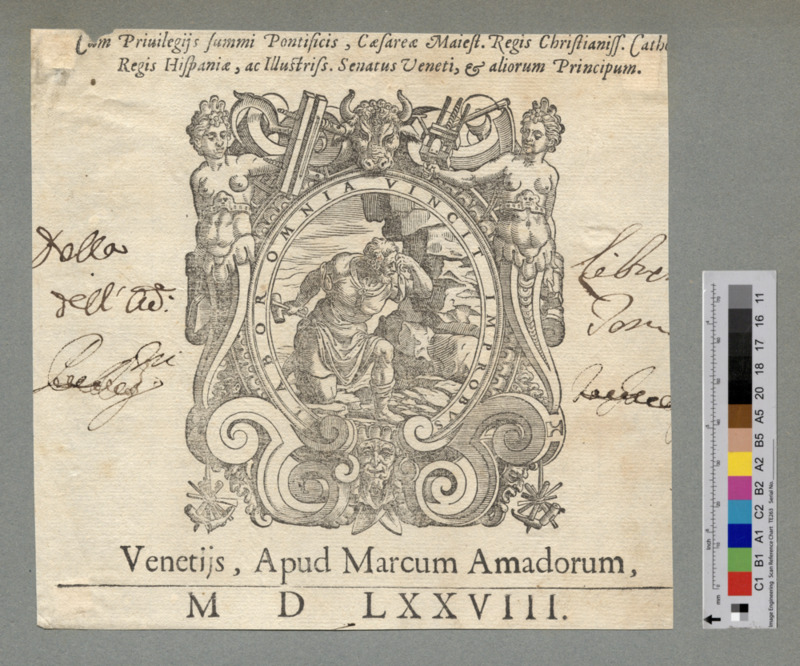 Cum Priuilegijs summi Pontificis, Cæsareæ Maiest. Regis Christianiss. Catho
Regis Hispaniæ, ac Illustriss. Senatus Veneti, & aliorum Principum.
LABOR OMNIA VINCIT IMPROBVS
Dalla
dell'
Libre
Venetijs, Apud Marcum Amadorum,
M D LXXVIII.
11
16
17
18
20
A5
B5
A2
B2
C2
A1
B1
C1
inch
mm
Image Engineering Scan Reference Chart TE263 Serial No.